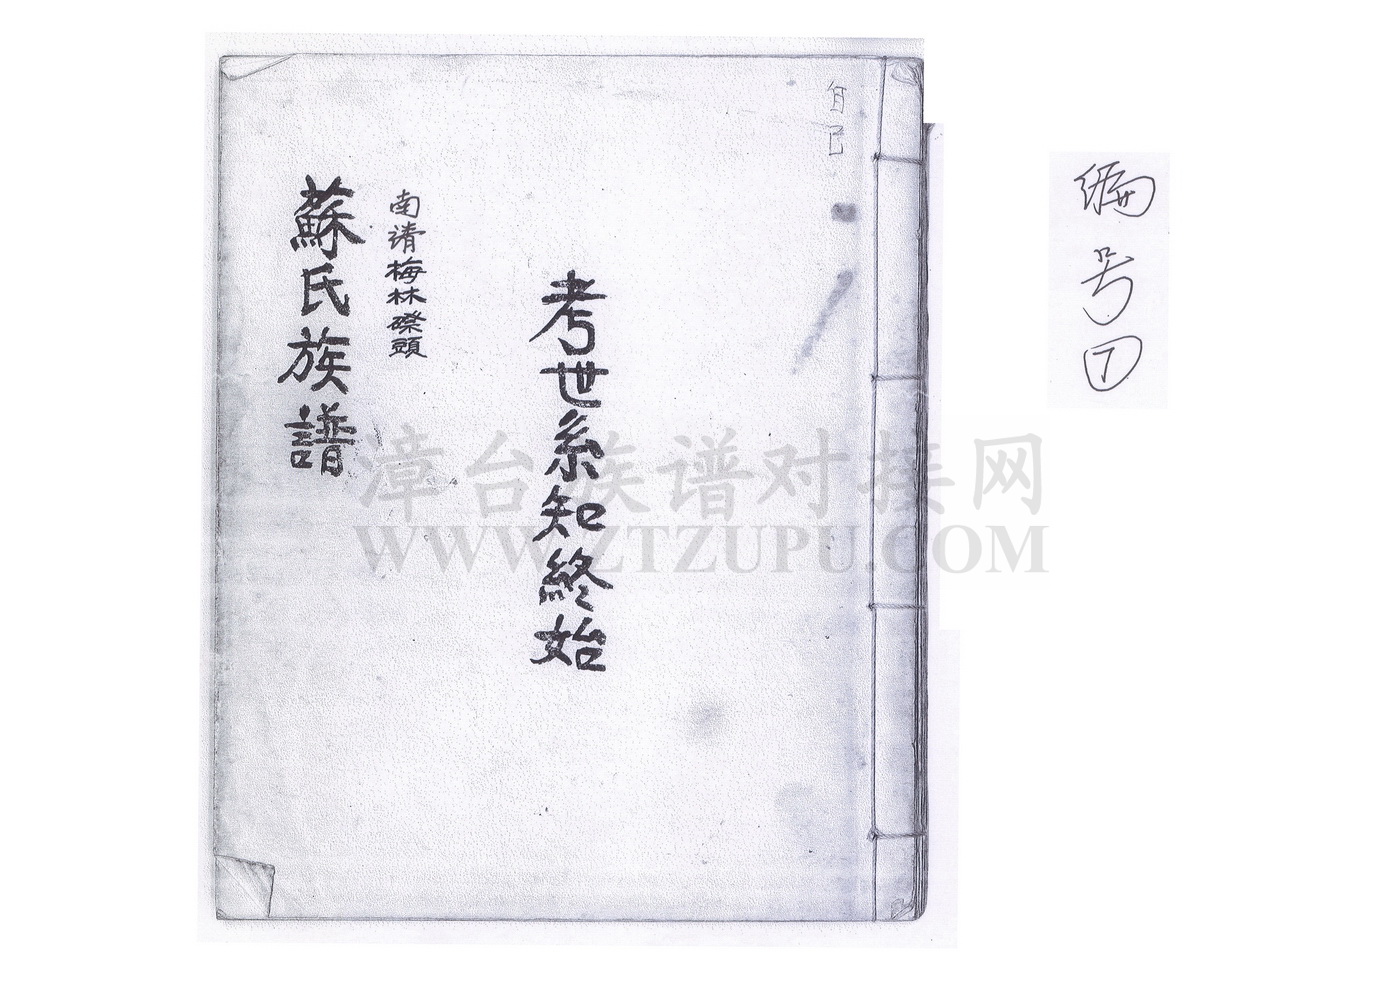 编号⑦
自己
考世系知終始
南靖梅林磜頭
蘇氏族譜
漳台族谱对接网
WWW.ZTZUPU.COM